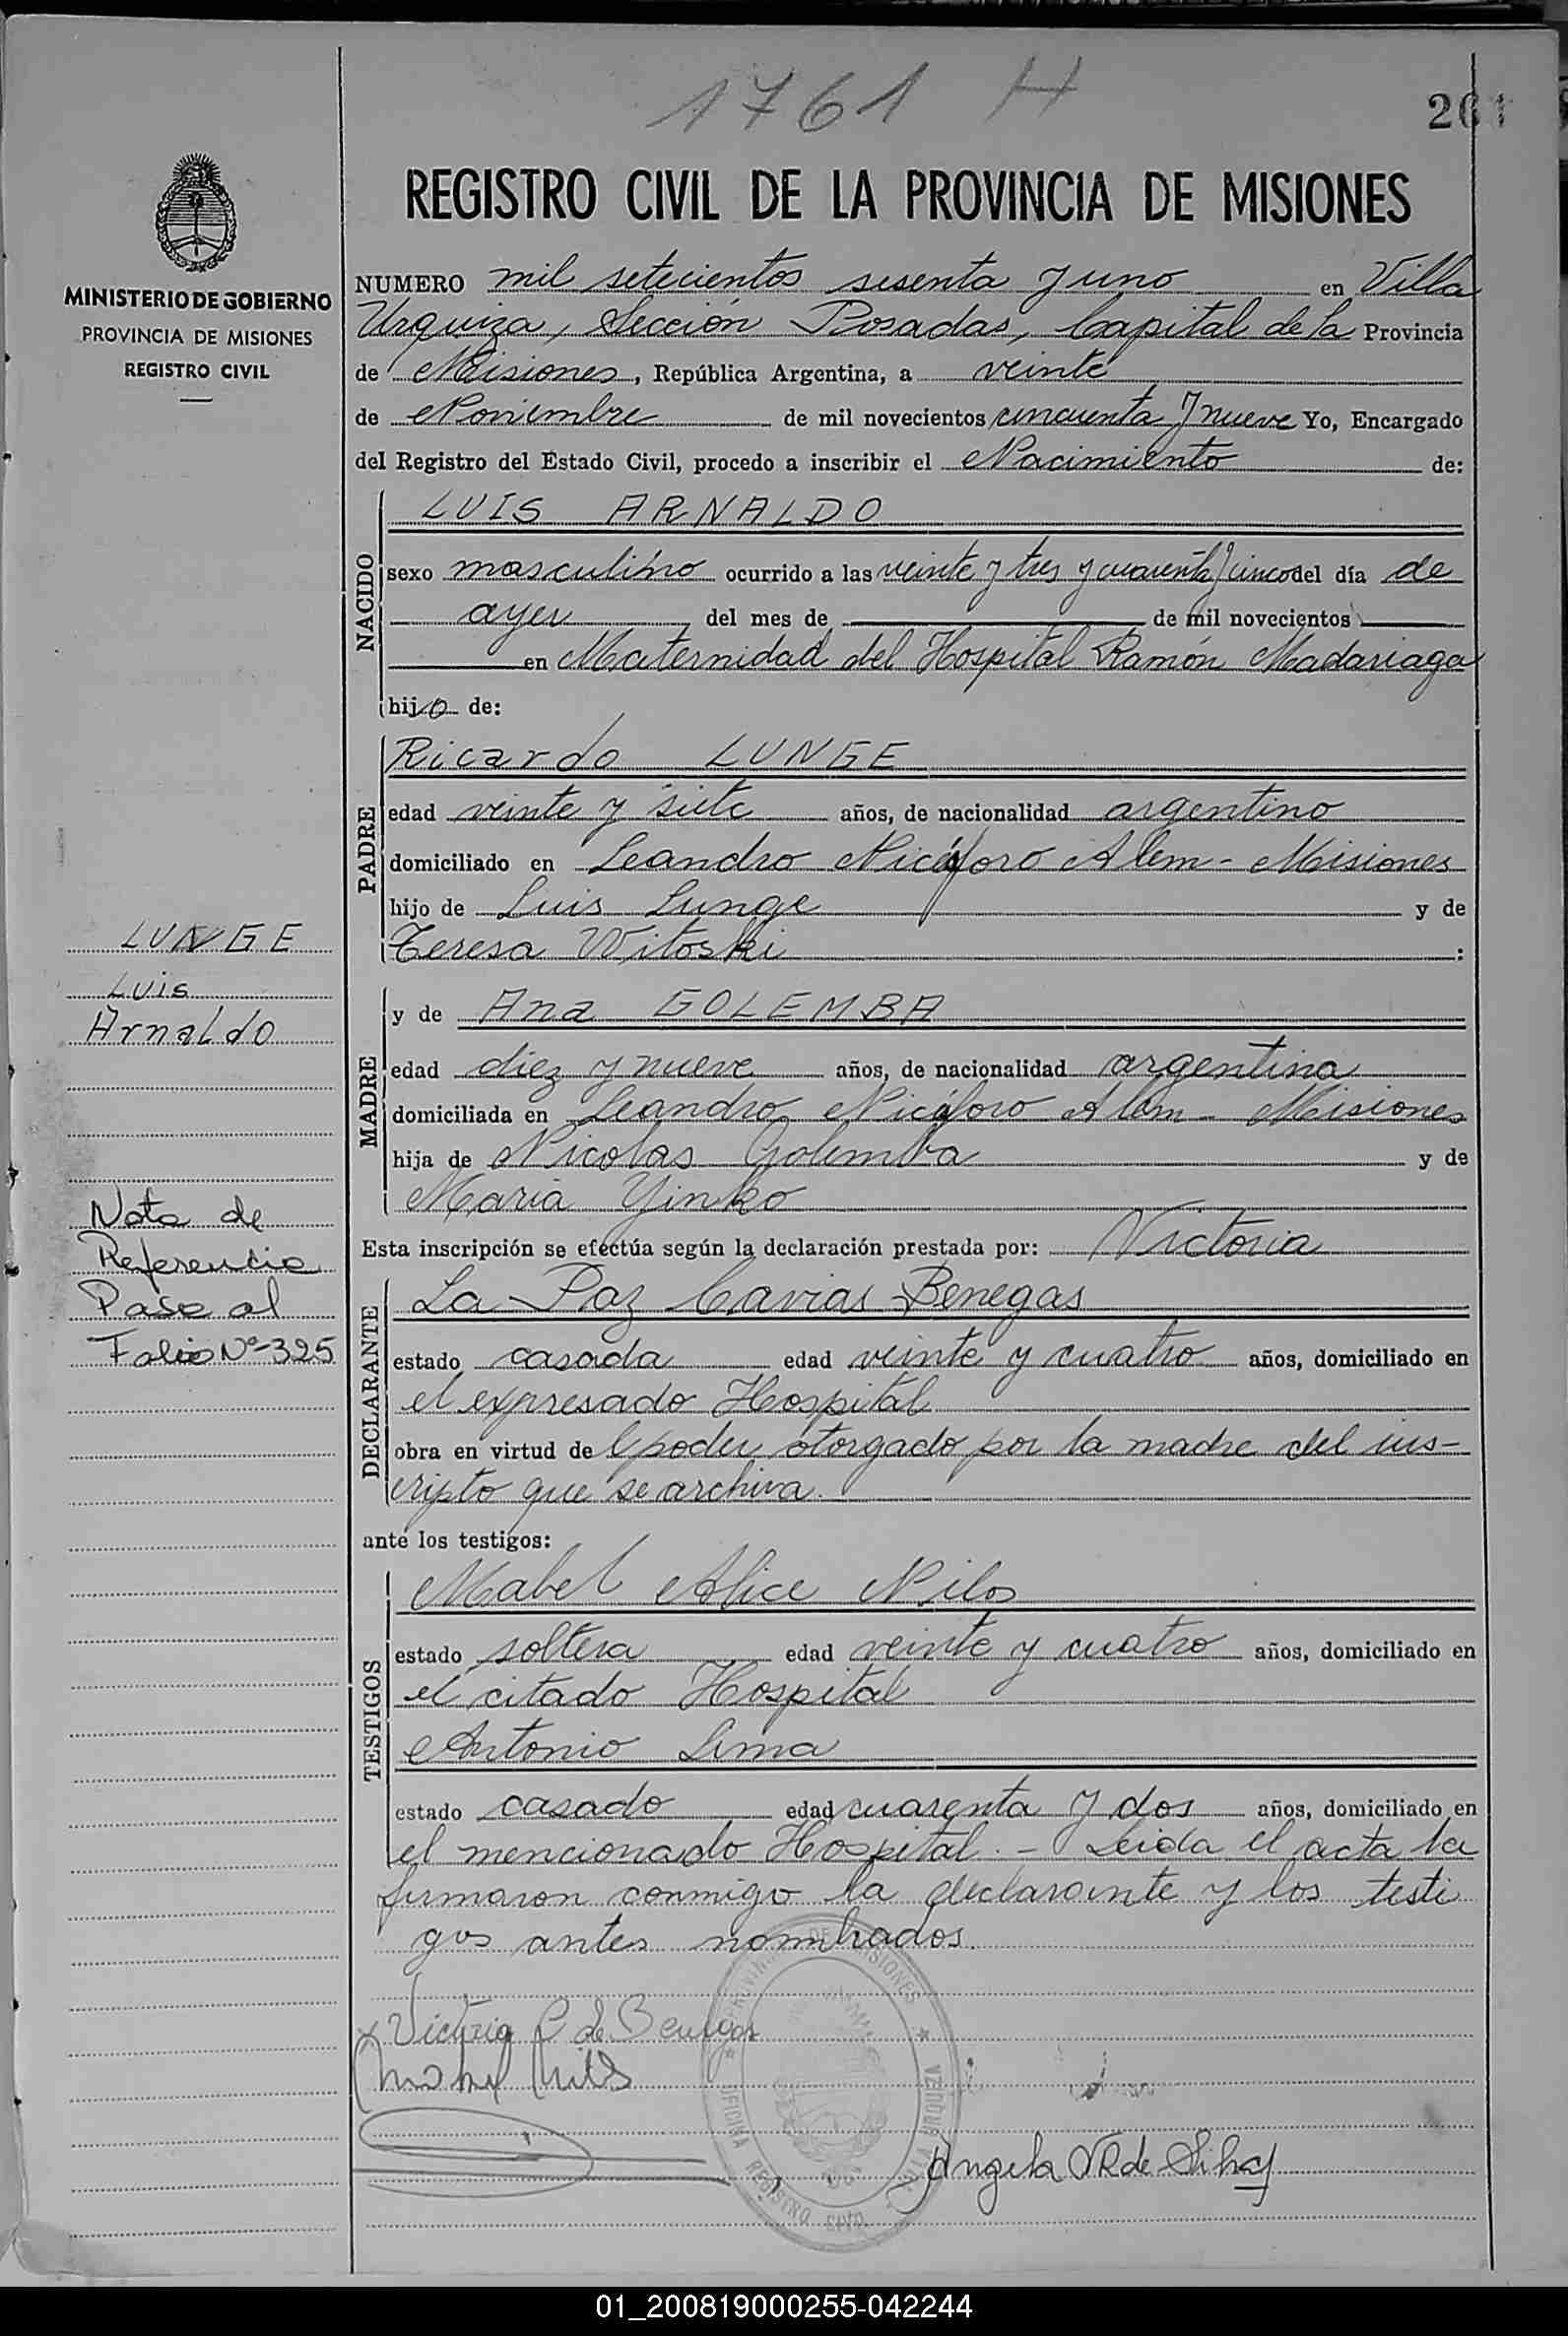 1761 H
261
REGISTRO CIVIL DE LA PROVINCIA DE MISIONES
MINISTERIO DE GOBIERNO
PROVINCIA DE MISIONES
REGISTRO CIVIL
NUMERO mil setecientos sesenta y uno en Villa
Urquiza, Sección Posadas, Capital de la Provincia
de Misiones, República Argentina, a veinte
de Noviembre de mil novecientos cincuenta y nueve Yo, Encargado
del Registro del Estado Civil, procedo a inscribir el Nacimiento de:
NACIDO
LUIS ARNALDO
sexo masculino ocurrido a las veinte y tres y cuarenta y cinco del día de
ayer del mes de de mil novecientos
en Maternidad del Hospital Ramón Madariaga
hijo de:
PADRE
Ricardo LUNGE
edad veinte y siete años, de nacionalidad argentino
domiciliado en Leandro Nicéforo Alem - Misiones
hijo de Luis Lunge y de
Teresa Witoski :
MADRE
y de Ana GOLEMBA
edad diez y nueve años, de nacionalidad argentina
domiciliada en Leandro Nicéforo Alem - Misiones
hija de Nicolas Golemba y de
Maria Yinko
Esta inscripción se efectúa según la declaración prestada por: Victoria
DECLARANTE
La Paz Cavias Benegas
estado casada edad veinte y cuatro años, domiciliado en
el expresado Hospital
obra en virtud de poder otorgado por la madre del ins-
cripto que se archiva.
ante los testigos:
TESTIGOS
Mabel Alice Nilos
estado soltera edad veinte y cuatro años, domiciliado en
el citado Hospital
Antonio Lima
estado casado edad cuarenta y dos años, domiciliado en
el mencionado Hospital. - Leida el acta la
firmaron conmigo la declarante y los testi
gos antes nombrados.
Victoria C de Benegas
Angela V R de Silva
LUNGE
Luis
Arnaldo
Nota de
Referencia
Pase al
Folio Nº-325
01_200819000255-042244